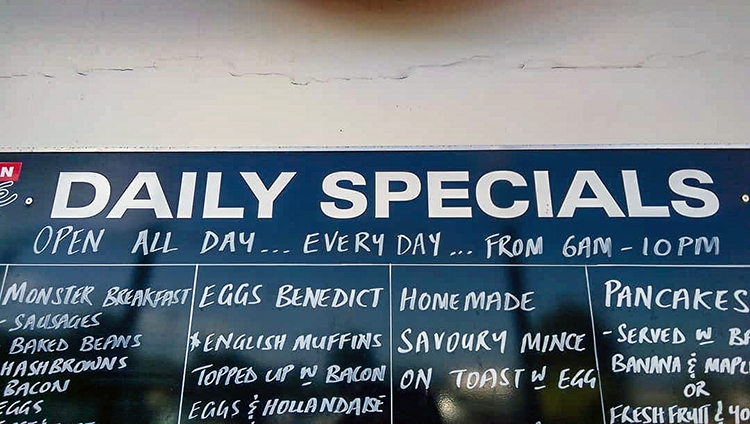 DAILY SPECIALS
OPEN ALL DAY... EVERY DAY... FROM 6AM - 10PM
MONSTER BREAKFAST
- SAUSAGES
BAKED BEANS
HASHBROWNS
BACON
EGGS
EGGS BENEDICT
*ENGLISH MUFFINS
TOPPED UP W BACON
EGGS & HOLLANDAISE
HOMEMADE
SAVOURY MINCE
ON TOAST W EGG
PANCAKES
- SERVED W
BANANA &
OR
FRESH FRUIT &